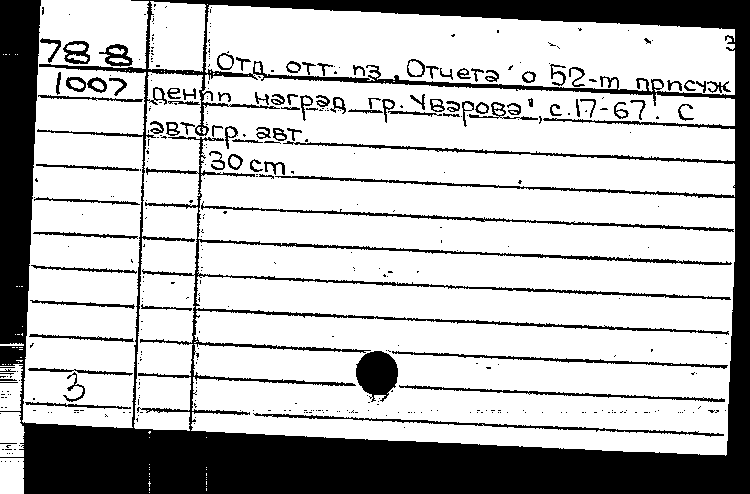 3
78-8 Отд. отт. из „Отчета о 52-м присуж
1007 дении наград гр. Уварова", с. 17-67. С
автогр. авт.
30 см.
3